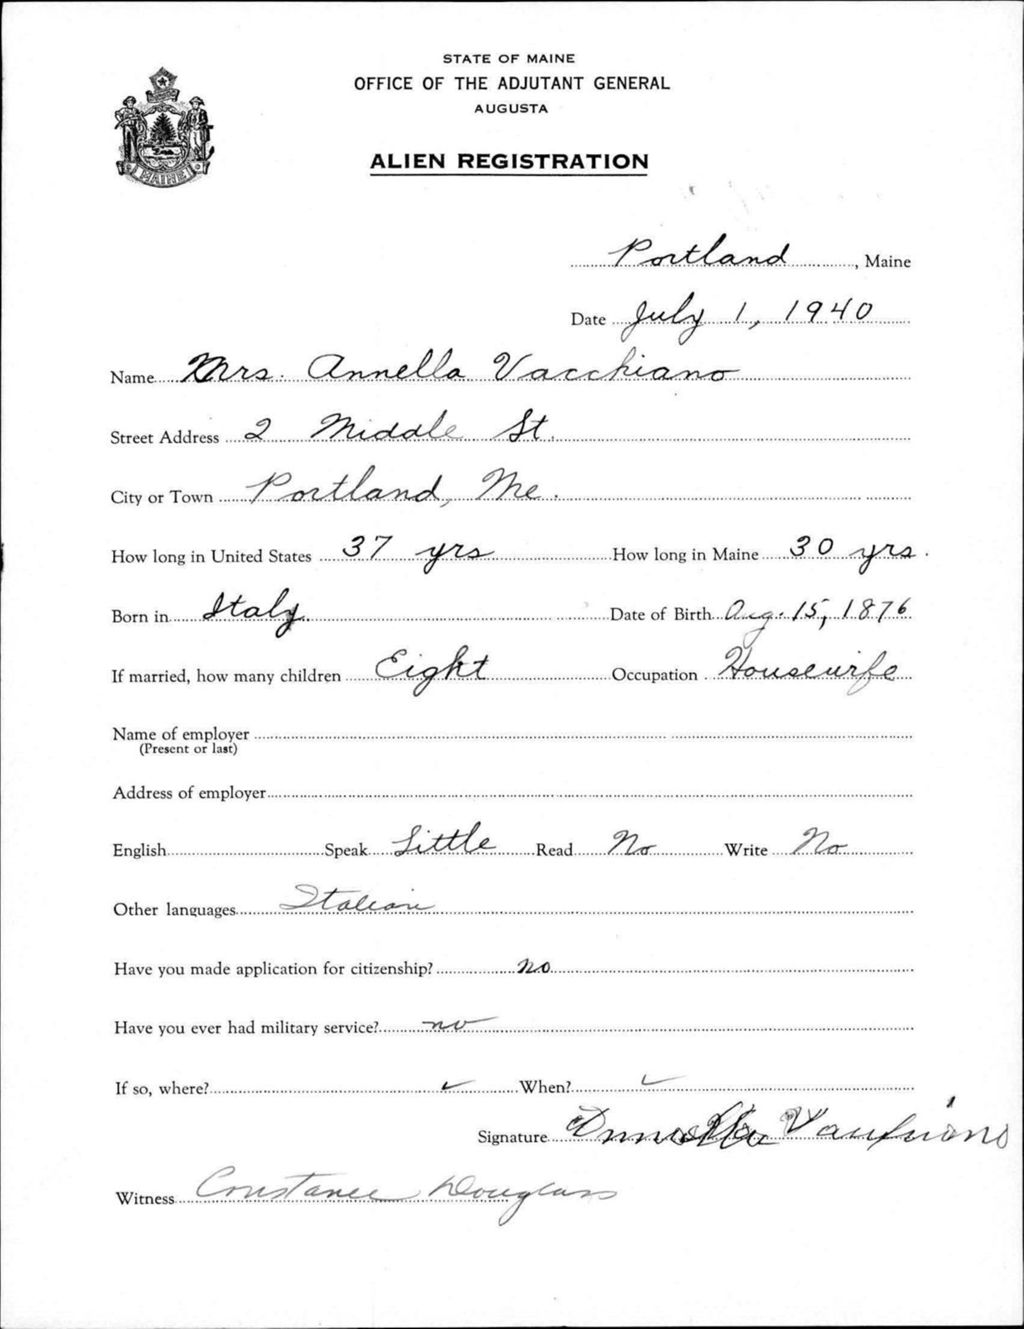 STATE OF MAINE
OFFICE OF THE ADJUTANT GENERAL
AUGUSTA
ALIEN REGISTRATION
MAINE
Portland, Maine
Date July 1, 1940
Name Mrs. Annella Vacchiano
Street Address 2 Middle St.
City or Town Portland, Me.
How long in United States 37 yrs How long in Maine 30 yrs.
Born in Italy Date of Birth Aug. 15, 1876
If married, how many children Eight Occupation Housewife
Name of employer
(Present or last)
Address of employer
English Speak Little Read No Write No
Other languages Italian
Have you made application for citizenship? no
Have you ever had military service? no
If so, where? When?
Signature
Witness Constance Douglass